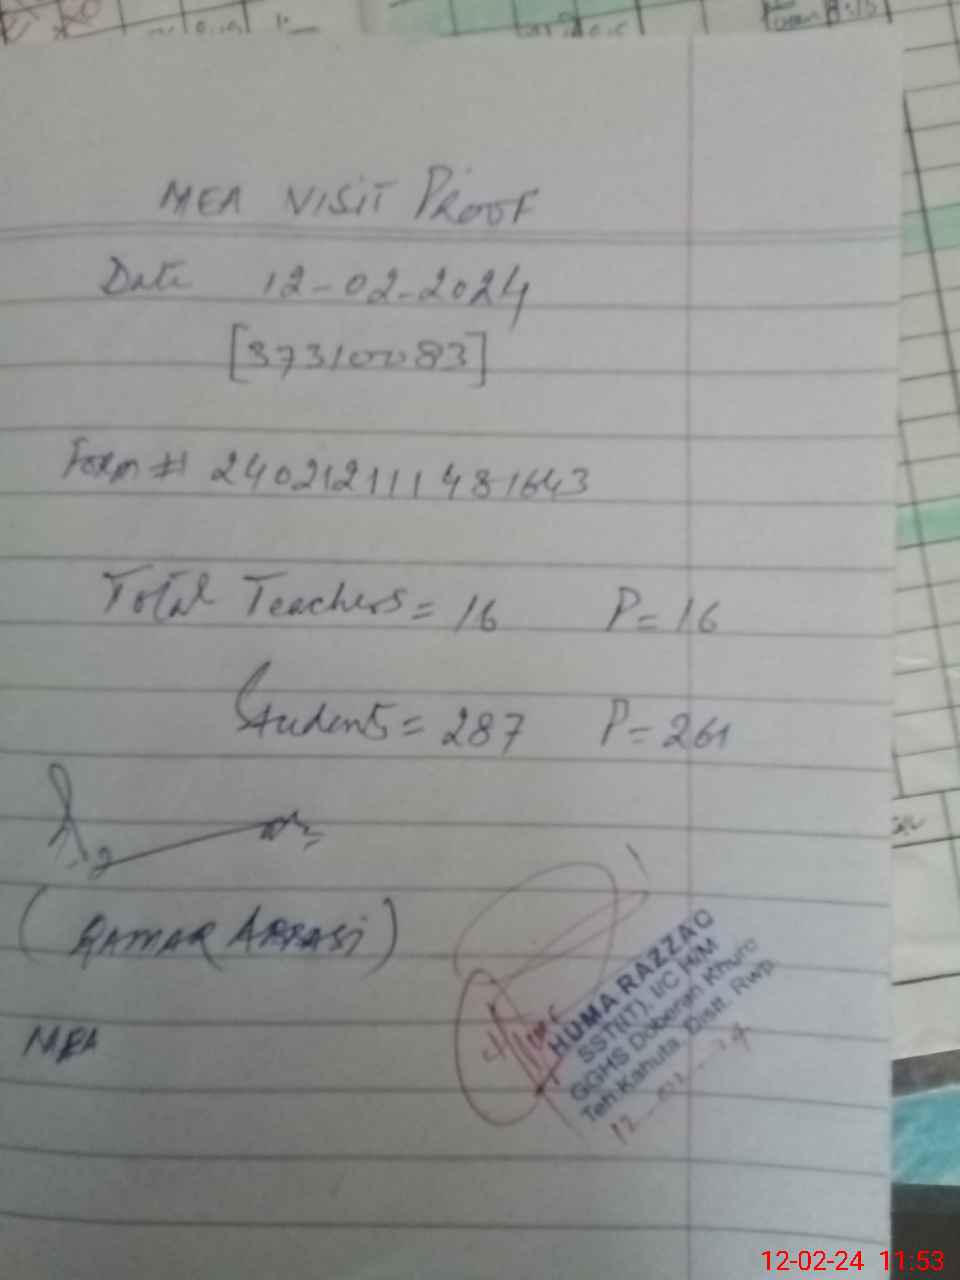 MEA VISIT PROOF
Date 12-02-2024
[37310083]
Form # 240212111481643
Total Teachers = 16 P = 16
Students = 287 P = 261
(QAMAR ABBASI)
MEA
HUMA RAZZAQ
SST(T), I/C H/M
GGHS Doberan Khurd
Teh. Kahuta, Distt. Rwp.
12-02-24 11:53